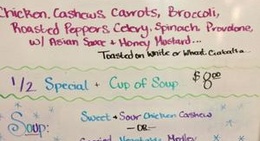 Chicken, Cashews Carrots, Broccoli,
Roasted Peppers Celery, Spinach Provolone,
w/ Asian Sauce + Honey Mustard...
Toasted on White or Wheat Ciabatta...
1/2 Special + Cup of Soup $8.00
Soup: Sweet + Sour Chicken Cashew
-OR-
Medley